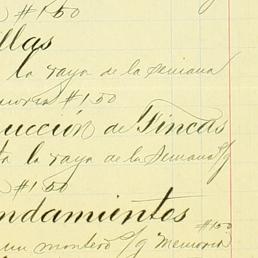 #150
llas
la raya de la semana
memoria #150
rucción de Fincas
la raya de la Semana s/g
#150
ndamientos
#150
un montero s/g Memoria